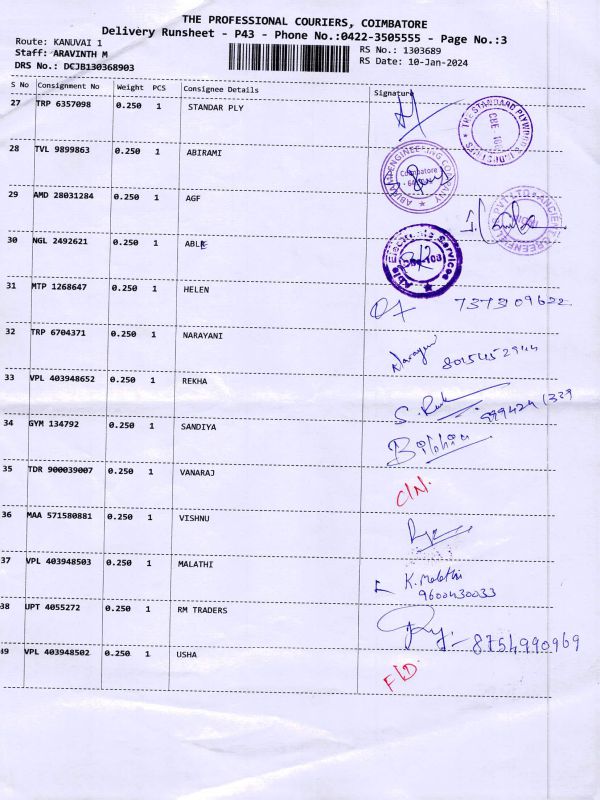 THE PROFESSIONAL COURIERS, COIMBATORE
Delivery Runsheet - P43 - Phone No.:0422-3505555 - Page No.:3
Route: KANUVAI 1
Staff: ARAVINTH M
DRS No.: DCJB130368903
RS No.: 1303689
RS Date: 10-Jan-2024
S No Consignment No Weight PCS Consignee Details Signature
27 TRP 6357098 0.250 1 STANDAR PLY
28 TVL 9899863 0.250 1 ABIRAMI
29 AMD 28031284 0.250 1 AGF
30 NGL 2492621 0.250 1 ABLE
Able Electronic Services
31 MTP 1268647 0.250 1 HELEN
32 TRP 6704371 0.250 1 NARAYANI 8015452944
33 VPL 403948652 0.250 1 REKHA
34 GYM 134792 0.250 1 SANDIYA
35 TDR 900039007 0.250 1 VANARAJ C/N.
36 MAA 571580881 0.250 1 VISHNU
37 VPL 403948503 0.250 1 MALATHI K. Malathi
9600430033
38 UPT 4055272 0.250 1 RM TRADERS 8754990969
39 VPL 403948502 0.250 1 USHA